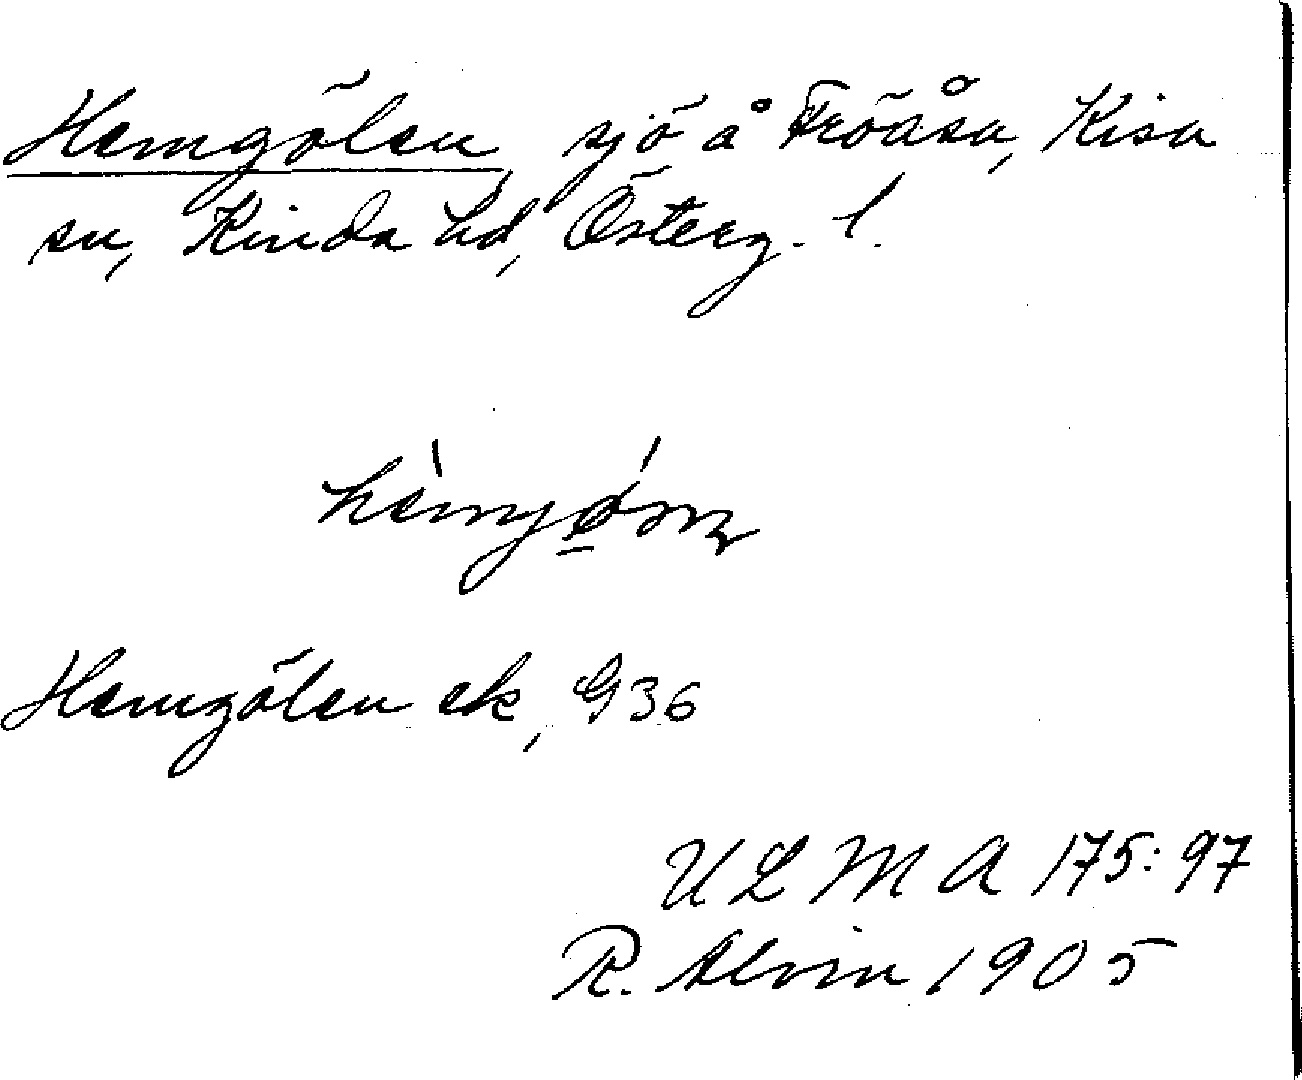 Hemgölen, sjö å Fröåsa, Kisa
sn, Kinda hd, Österg. l.
Hemgölen ek, G36
ULMA 175:97
R. Alvin 1905